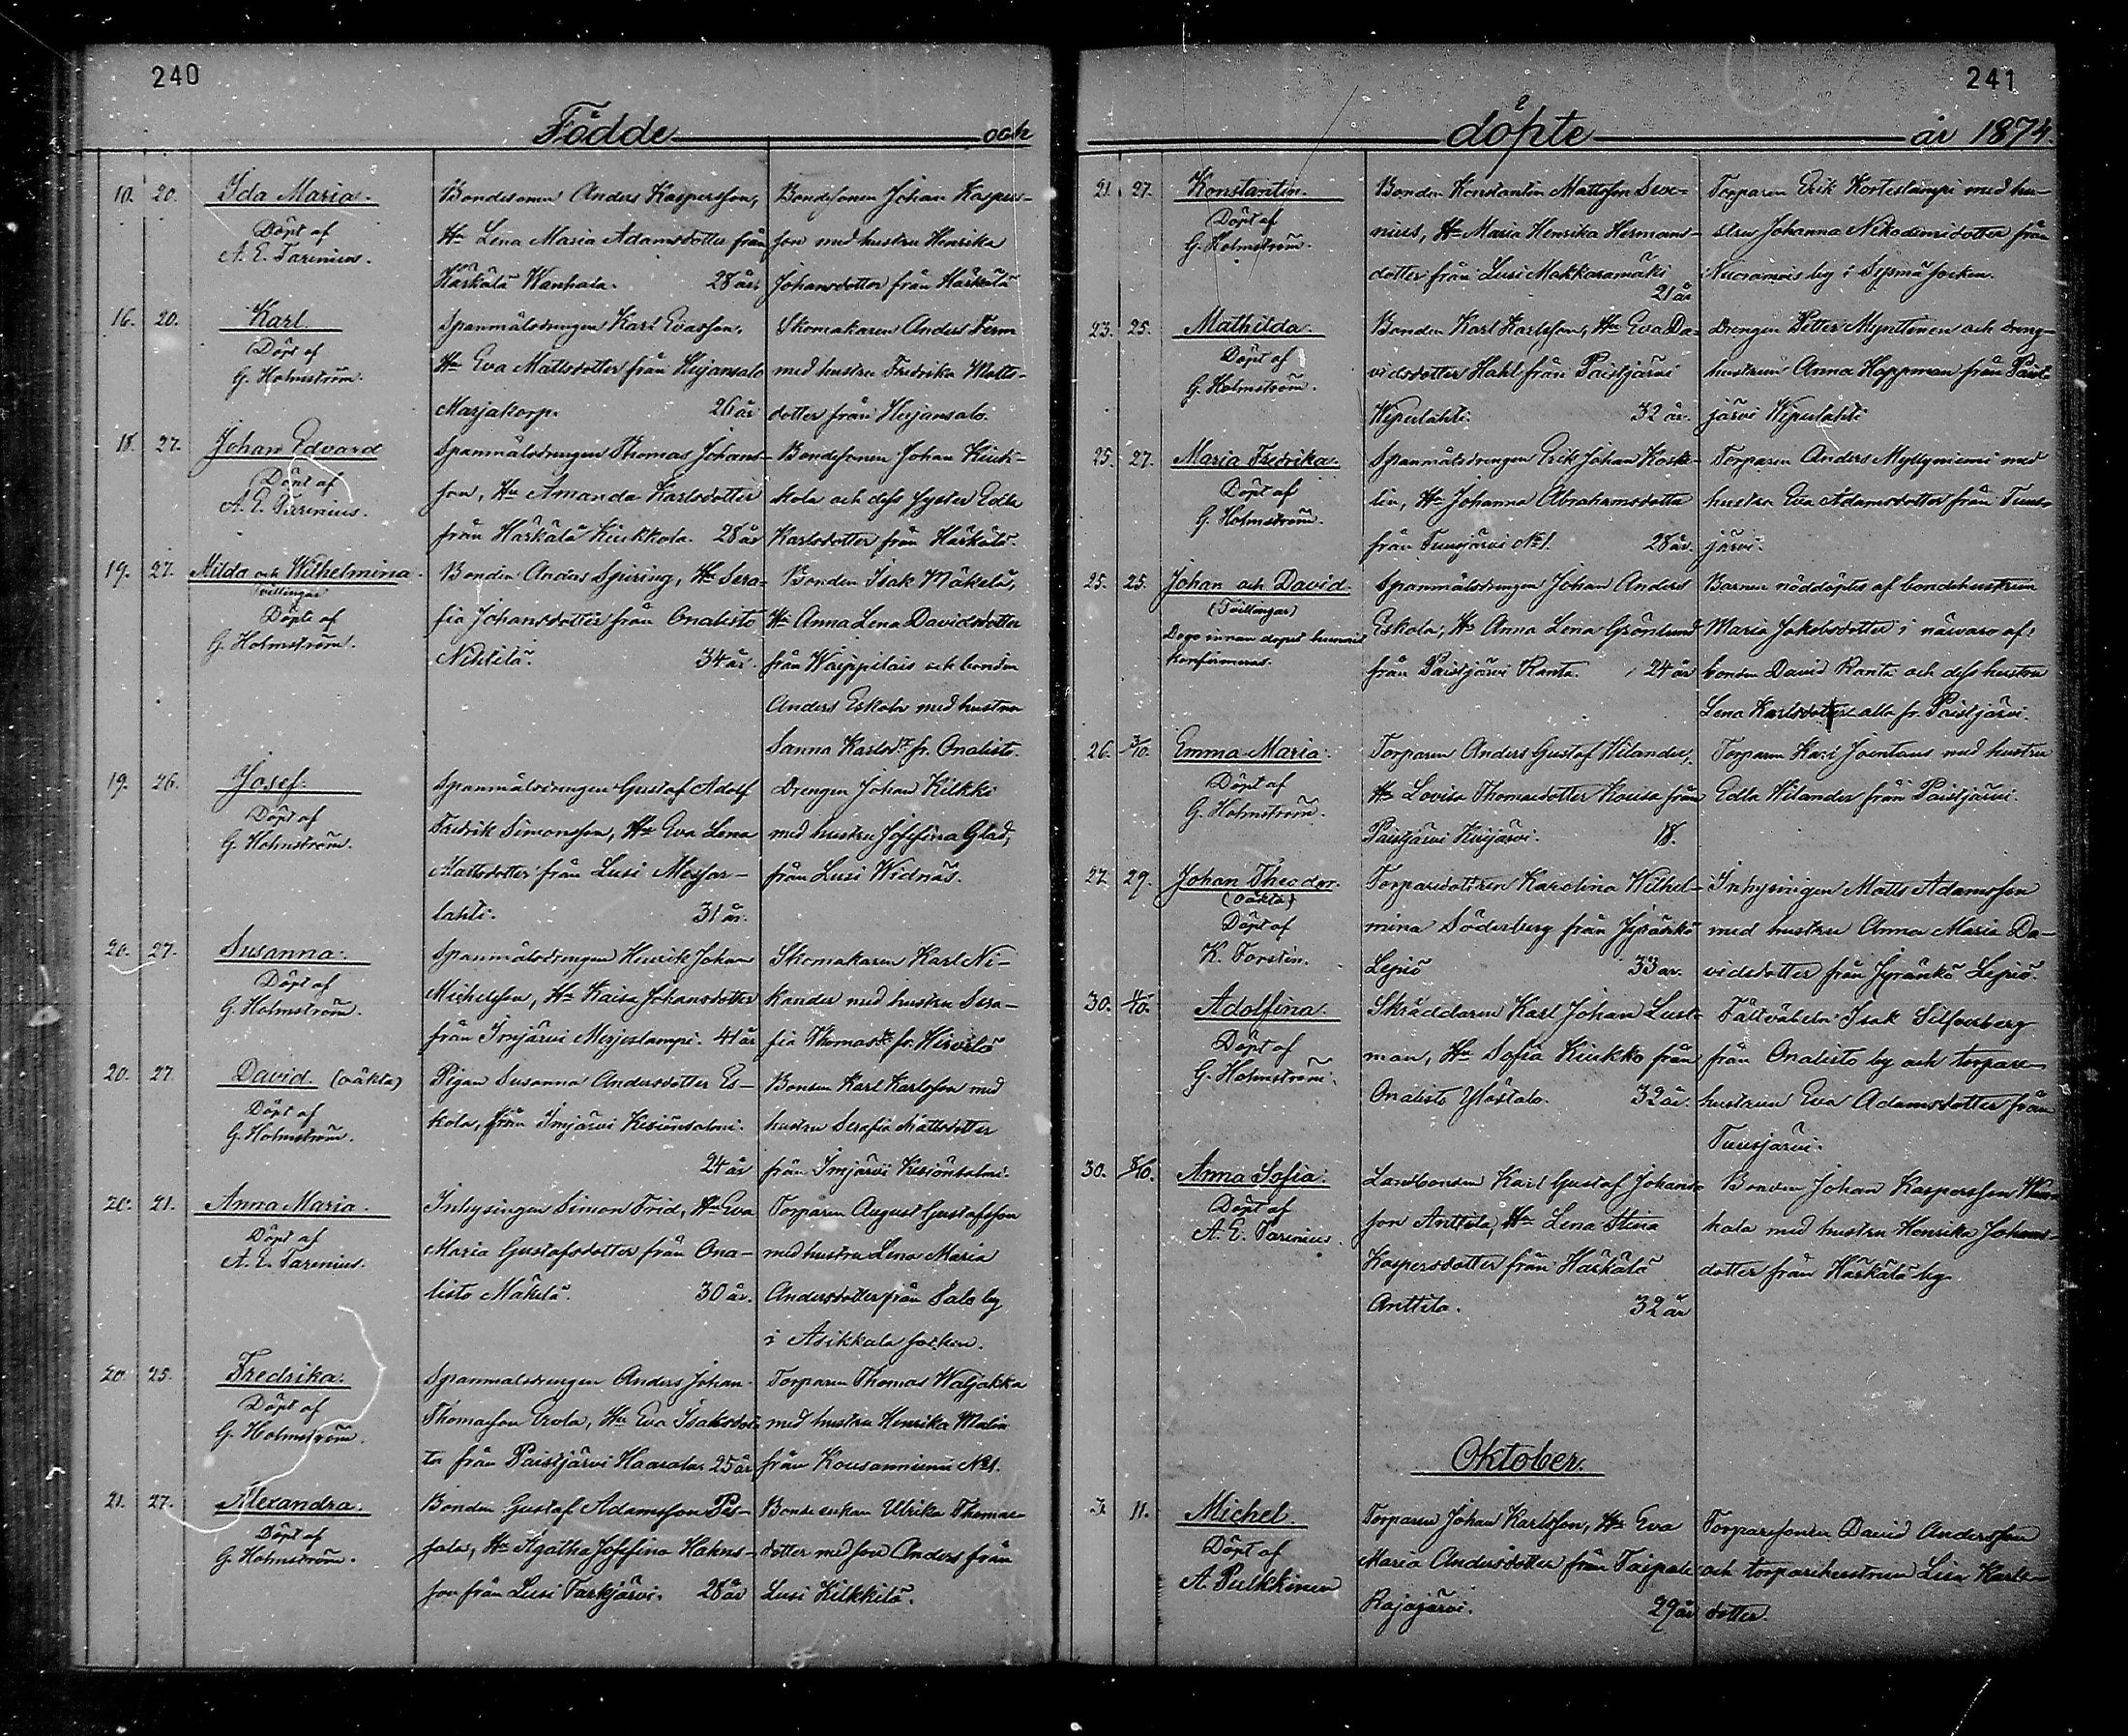 240
Födde och
10. 20. Ida Maria.
Döpt af
A. E. Tarenius.
Bondesonen Anders Kaspersson,
Hu Lena Maria Adamsdotter från
Härkälä Wanhala. 28 år
Bondesonen Johan Kaspers-
son med hustru Henrika
Johansdotter från Härkälä
16. 20. Karl.
Döpt af
G. Holmström.
Spanmålsdrengen Karl Evasson,
Hu Eva Mattsdotter från Heijansalo
Marjakorp. 26 år
Skomakaren Anders Ferm
med hustru Fredrika Matts-
dotter från Heijansalo.
18. 27. Johan Edvard
Döpt af
A. E. Tarenius.
Spanmålsdrengen Thomas Johans-
son, Hu Amanda Karlsdotter
från Härkälä Kiukkola. 28 år
Bondesonen Johan Kiuk-
kola och dess syster Edla
Karlsdotter från Härkälä.
19. 27. Milda och Wilhelmina.
(tvillingar)
Döpte af
G. Holmström.
Bonden Anders Spiring, Hu Sera-
fia Johansdotter från Onalisto
Nihtilä. 34 år.
Bonden Isak Mäkelä,
Hu Anna Lena Davidsdotter
från Waippilais och bonden
Anders Eskola med hustru
Sanna Karlsdr. fr. Onalisto.
19. 26. Josef.
Döpt af
G. Holmström.
Spanmålsdrengen Gustaf Adolf
Fredrik Simonsson, Hu Eva Lena
Mattsdotter från Lusi Messar-
lahti. 31 år.
Drengen Johan Kilkki
med hustru Josefina Glad,
från Lusi Widnäs.
20. 27. Susanna.
Döpt af
G. Holmström.
Spanmålsdrengen Henrik Johan
Michelsson, Hu Kaisa Johansdotter
från Imjärvi Merjeslampi. 41 år
Skomakaren Karl Ni-
kander med hustru Sera-
fia Thomasdr. fr. Hirvelä
20. 27. David. (oäkta)
Döpt af
G. Holmström.
Pigan Susanna Andersdotter Es-
kola, från Imjärvi Kesiönsalmi.
24 år
Bonden Karl Karlsson med
hustru Serafia Mattsdotter
från Imjärvi Kesiönsalmi.
20. 21. Anna Maria.
Döpt af
A. E. Tarenius.
Inhysingen Simon Frid, Hu Eva
Maria Gustafsdotter från Ona-
listo Mäkelä. 30 år.
Torparen August Gustafsson
med hustru Lena Maria
Andersdotter från Salo by
i Asikkala socken.
20. 25. Fredrika.
Döpt af
G. Holmström.
Spanmalsdrengen Anders Johan
Thomasson Erola, Hu Eva Isaksdot-
ter från Paistjärvi Haarala. 25 år
Torparen Thomas Waljakka
med hustru Henrika Malin
från Kousanniemi No 1.
21. 27. Alexandra.
Döpt af
G. Holmström.
Bonden Gustaf Adamsson Pes-
sala, Hu Agatha Josefina Hahns-
son från Lusi Tarkjärvi. 28 år
Bonde enkan Ulrika Thomas-
dotter med son Anders från
Lusi Kilkkilä.
241
döpte år 1874.
21. 27. Konstantin.
Döpt af
G. Holmström.
Bonden Konstantin Mattsson Seve-
nius, Hu Maria Henrika Hermans-
dotter från Lusi Makkaramäki
21 år
Torparen Erik Korteslampi med hu-
stru Johanna Nikodemidotter från
Nuoramois by i Sysmä socken.
23. 25. Mathilda.
Döpt af
G. Holmström.
Bonden Karl Karlsson, Hu Eva Da-
vidsdotter Hahl från Paistjärvi
Wipulahti. 32 år.
Drengen Petter Mynttinen och dreng-
hustrun Anna Hoppman från Paist-
järvi Wipulahti
25. 27. Maria Fredrika.
Döpt af
G. Holmström.
Spanmålsdrengen Erik Johan Koske-
lin, Hu Johanna Abrahamsdotter
från Tuusjärvi No 1. 28 år.
Torparen Anders Myllyniemi med
hustru Eva Adamsdotter från Tuus-
järvi.
25. 25. Johan och David.
(Tvillingar)
Dogo innan dopet hunnit
konfirmeras.
Spanmålsdrengen Johan Anders
Eskola, Hu Anna Lena Grönlund
från Paistjärvi Ranta. 24 år
Barnen nöddöptes af bondehustrun
Maria Jakobsdotter i närvaro af
bonden David Ranta och dess hustru
Lena Karlsdotter alla fr. Paistjärvi.
26. 3/10. Emma Maria.
Döpt af
G. Holmström.
Torparen Anders Gustaf Wilander,
Hu Lovisa Thomasdotter Kousa från
Paistjärvi Kuijärvi. 18.
Torparen Karl Joentaus med hustru
Edla Wilander från Paistjärvi.
27. 29. Johan Theodor.
(oäkta)
Döpt af
K. Forstén.
Torparedottren Karolina Wilhel-
mina Söderberg från Jyränkö
Lepiö 33 år.
Inhysingen Matts Adamsson
med hustru Anna Maria Da-
vidsdotter från Jyränkö Lepiö.
30. 4/10. Adolfina.
Döpt af
G. Holmström.
Skräddaren Karl Johan Lust-
man, Hu Sofia Kiukko från
Onalisto Ylöstalo. 32 år.
Fältväbeln Isak Silfverberg
från Onalisto by och torpare-
hustrun Eva Adamsdotter från
Tuusjärvi.
30. 8/10. Anna Sofia.
Döpt af
A. E. Tarenius.
Landbonden Karl Gustaf Johans-
son Anttila, Hu Lena Stina
Kaspersdotter från Härkälä
Anttila. 32 år
Bonden Johan Kaspersson Wan-
hala med hustru Henrika Johans-
dotter från Härkälä by.
Oktober.
3. 11. Michel.
Döpt af
A. Pulkkinen
Torparen Johan Karlsson, Hu Eva
Maria Andersdotter från Taipale
Rajajärvi. 29 år
Torparesonen David Andersson
och torparehustrun Lisa Karls-
dotter.